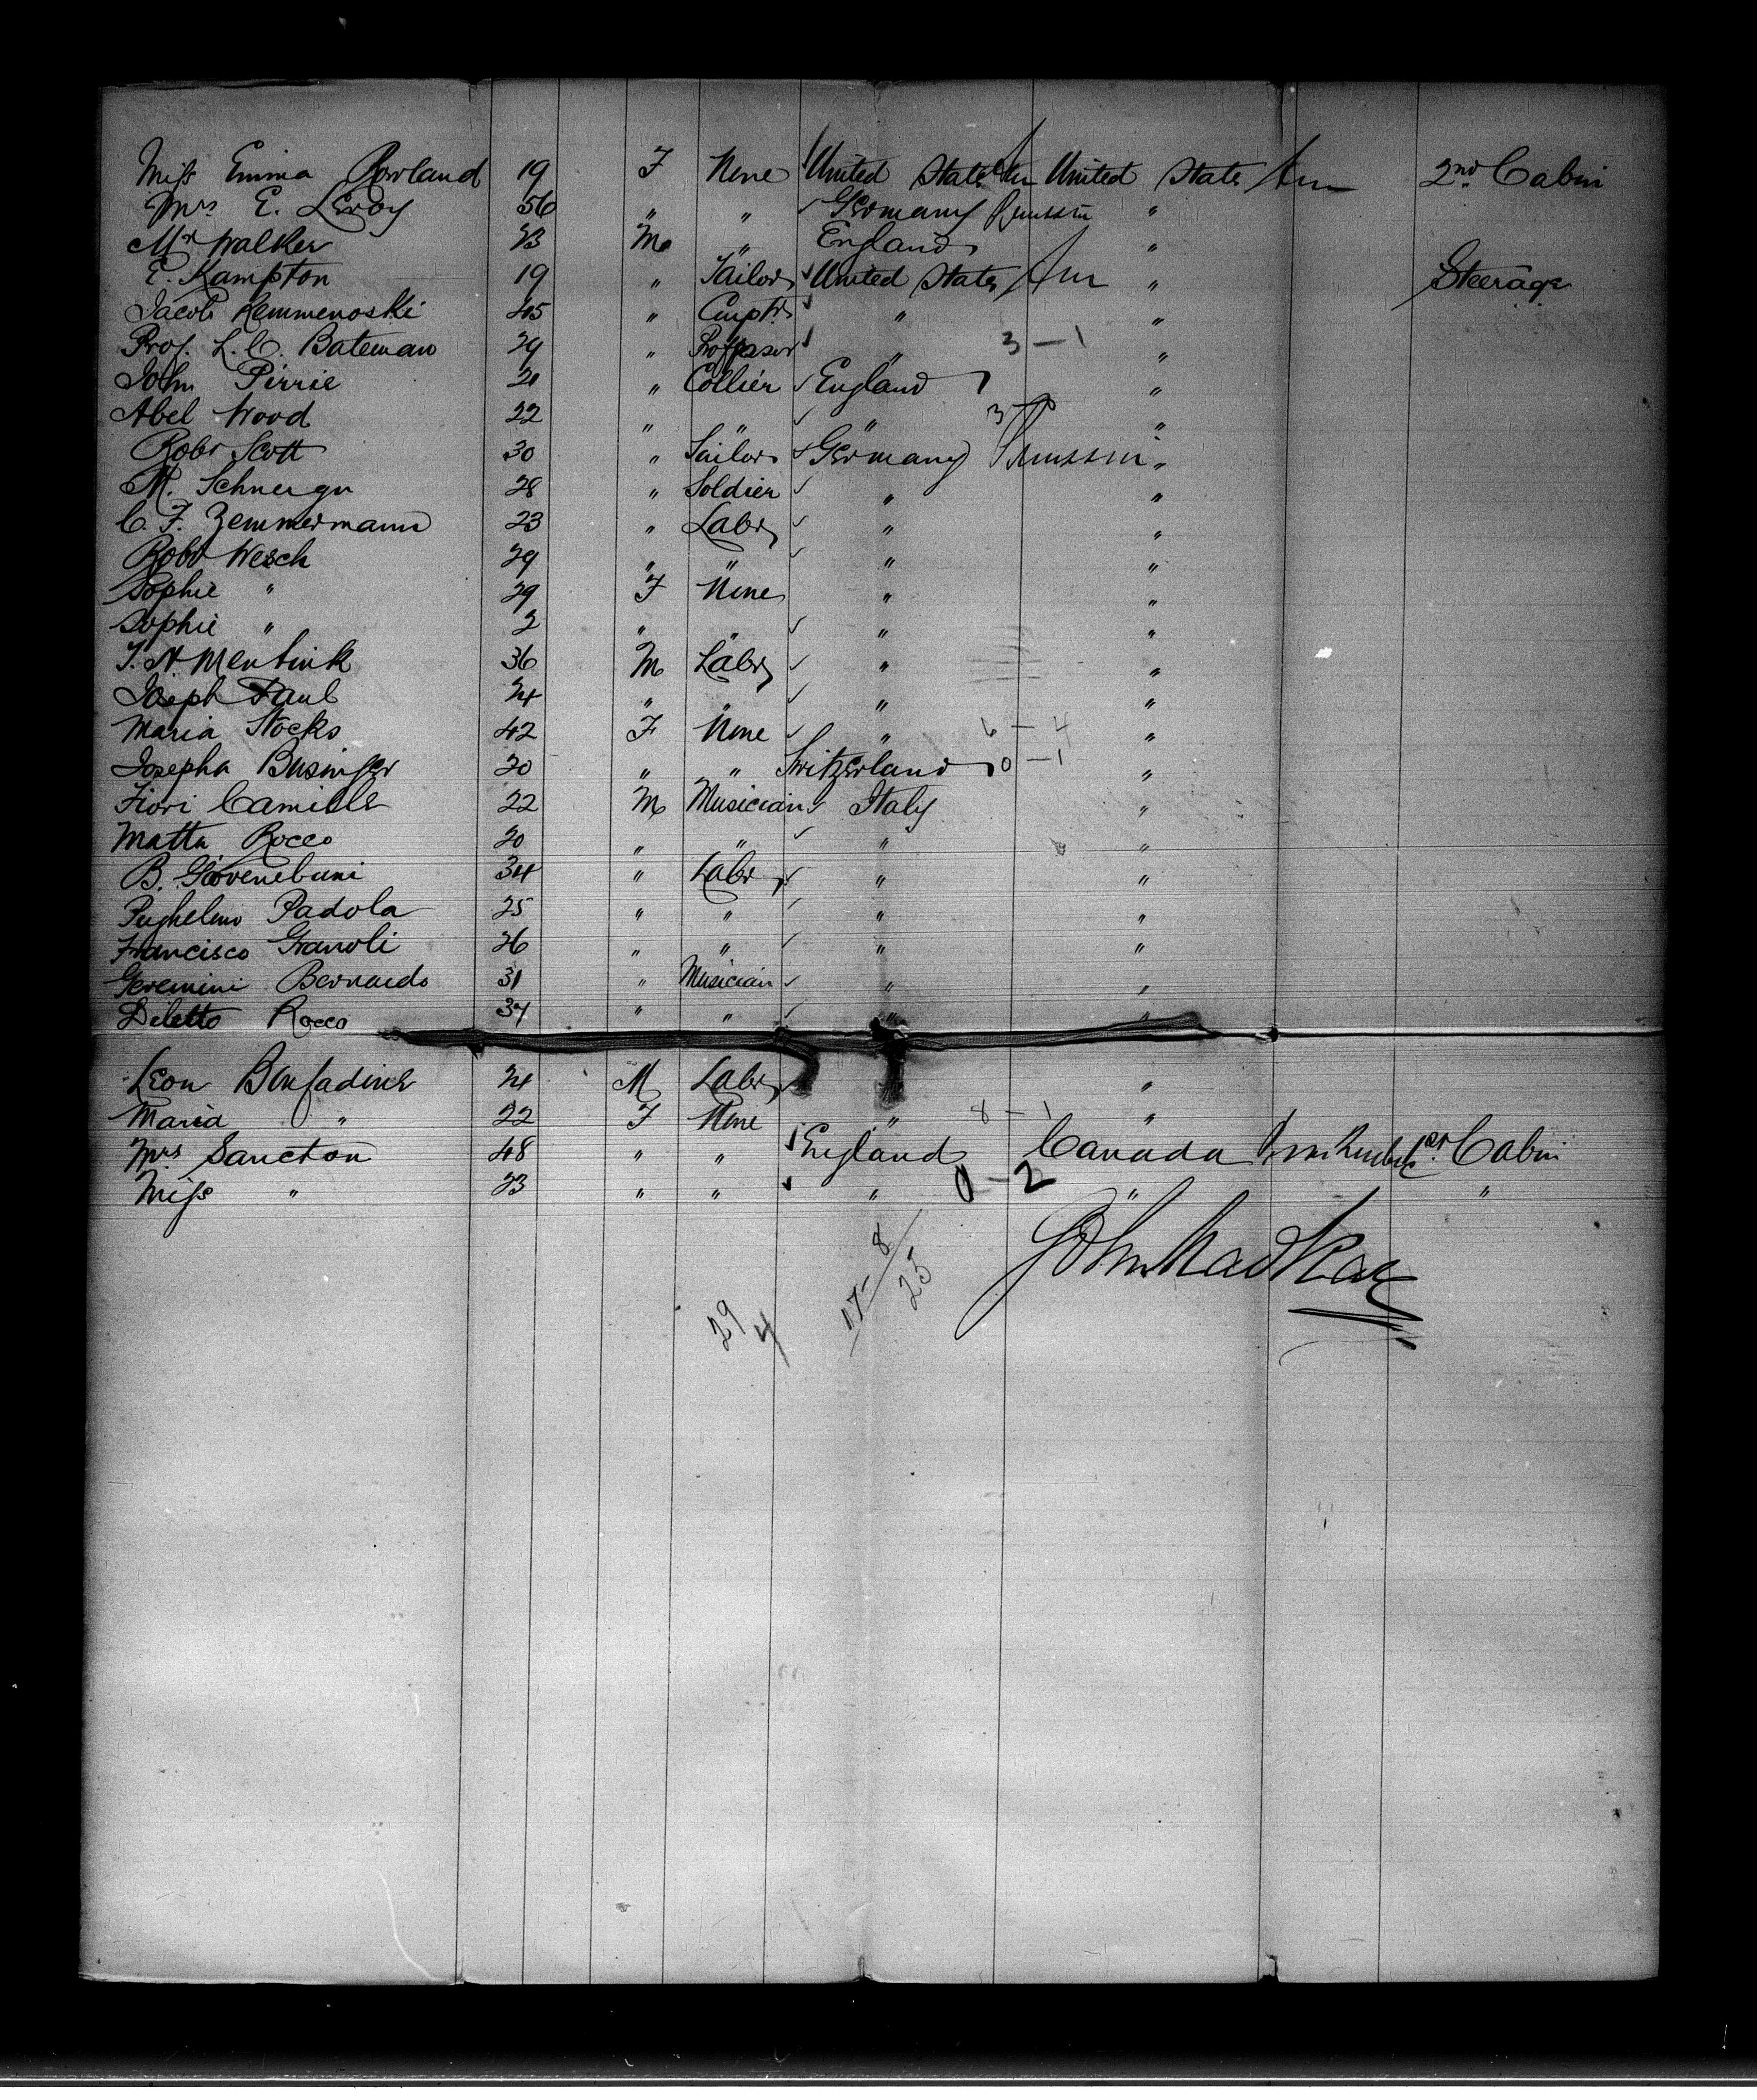 Miss Emma Rowland 19 F None United States Am United States Am 2nd Cabin
Mrs E. LeRoy 56 " " Germany Prussia "
Mr Walker 23 M " England "
E. Kampton 19 " Tailor United States Am " Steerage
Jacob Kemmenoski 45 " Carptr " "
Prof. L. C. Bateman 29 " Proffesor " 3 — 1 "
John Pirrie 21 " Collier England "
Abel Wood 22 " " " "
Robt Scott 30 " Tailor Germany Prussia "
M. 28 " Soldier " "
C. F. Zemmermann 23 " Labr " "
Robt Wesch 29 " " " "
Sophie " 29 F None " "
Sophie " 2 " " " "
J. H. Mentink 36 M Labr " "
Joseph Paul 24 " " " "
Maria Stocks 42 F None " 6 — 4 "
Josepha Businger 20 " " Switzerland 0 — 1 "
Fiori Camille 22 M Musician Italy "
Matta Rocco 20 " " " "
B. 34 " Labr " "
Padola 25 " " " "
Francisco Granoli 26 " " " "
Geremini Bernardo 31 " Musician " "
Diletto Rocco 34 " " " "
Leon Benfadine 24 M Labr "
Maria " 22 F None " 8 — 1 "
Mrs Sancton 48 " " England Canada 1st Cabin
Miss " 23 " " " 0 — 2 " "
John MacKay
17 — 8
25
29
4